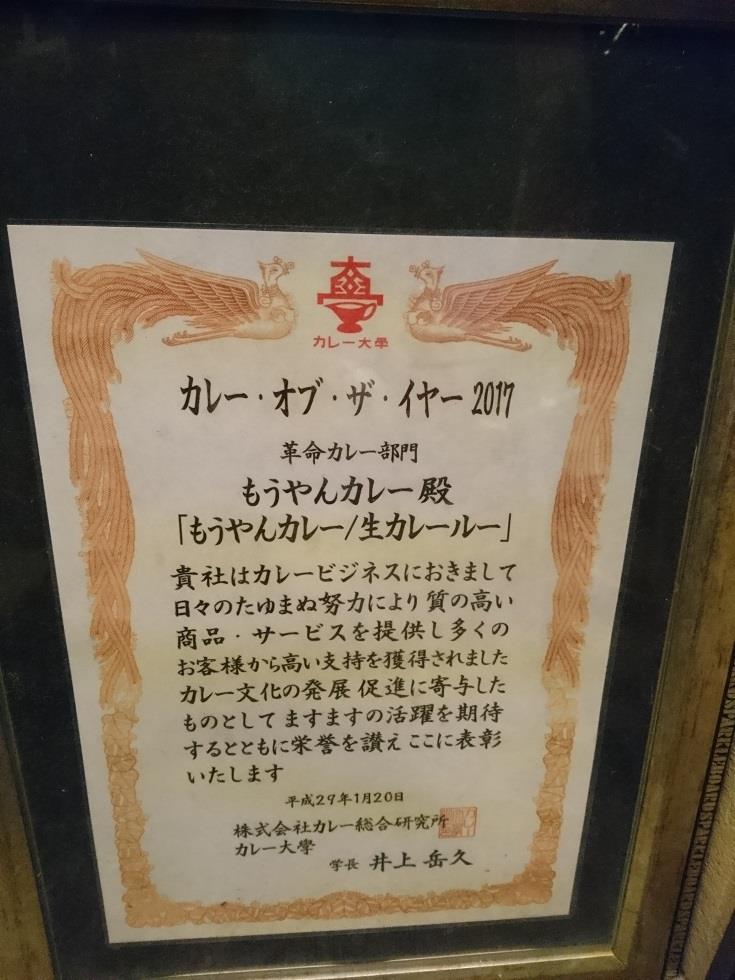 カレー大學
カレー・オブ・ザ・イヤー 2017
革命カレー部門
もうやんカレー殿
「もうやんカレー/生カレールー」
貴社はカレービジネスにおきまして
日々のたゆまぬ努力により質の高い
商品・サービスを提供し多くの
お客様から高い支持を獲得されました
カレー文化の発展 促進に寄与した
ものとして ますますの活躍を期待
するとともに栄誉を讃え ここに表彰
いたします
平成29年1月20日
株式会社カレー総合研究所
カレー大學
学長 井上 岳久